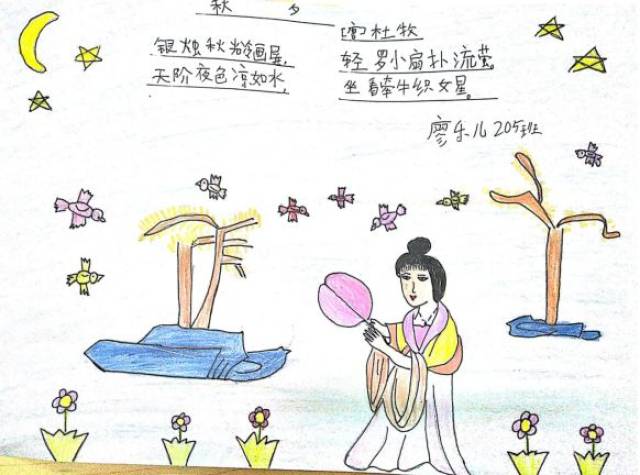 秋 夕
[唐]杜牧
银烛秋光冷画屏,
轻罗小扇扑流萤。
天阶夜色凉如水,
坐看牵牛织女星。
廖乐儿 205班